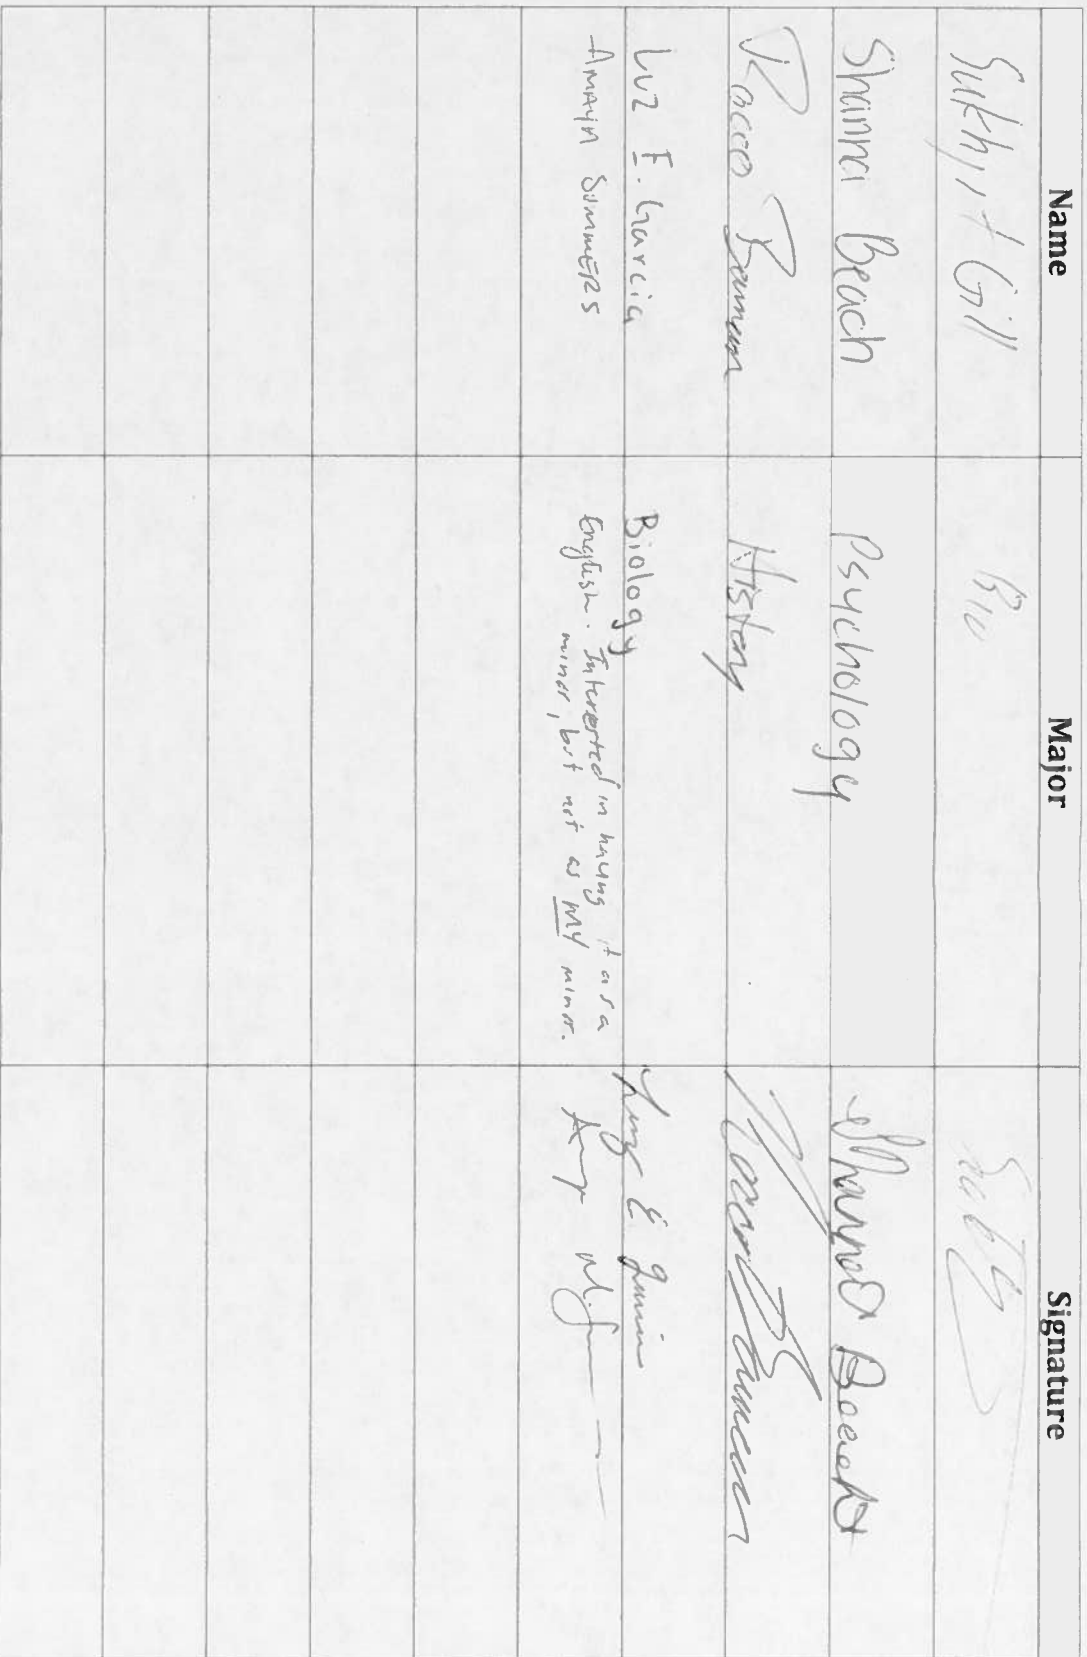 Name Major Signature
Sukhjit Gill Bio
Shanna Beach Psychology Shanna Beach
Rocco History
Luz E. Garcia Biology Luz E. Garcia
Amayn Summers English. Interested in having it as a
minor, but not as my minor.